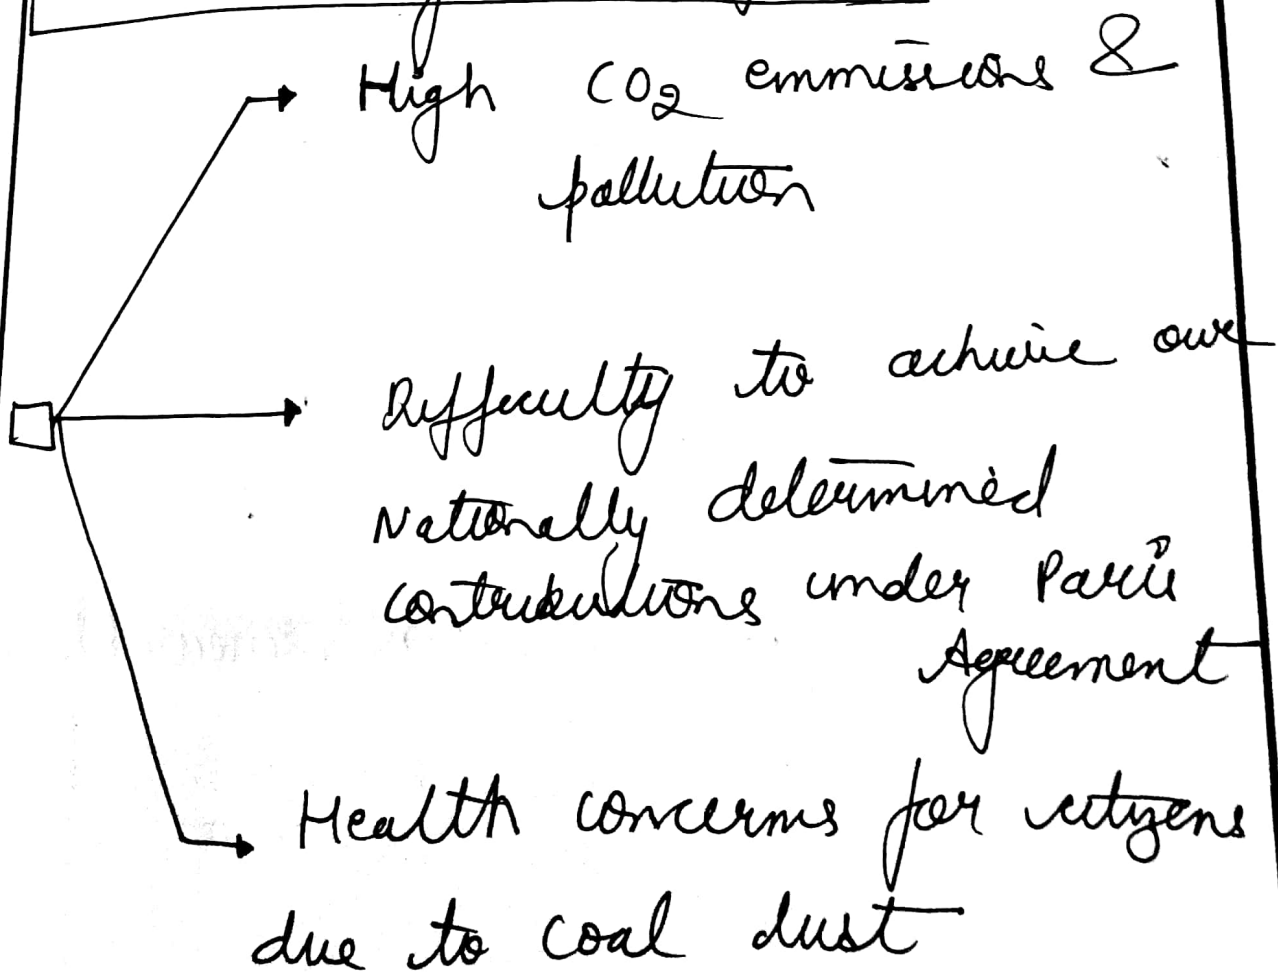 High CO2 emmissions &
pollution
Difficulty to achieve our
Nationally determined
contributions under Paris
Agreement
Health concerns for citizens
due to coal dust